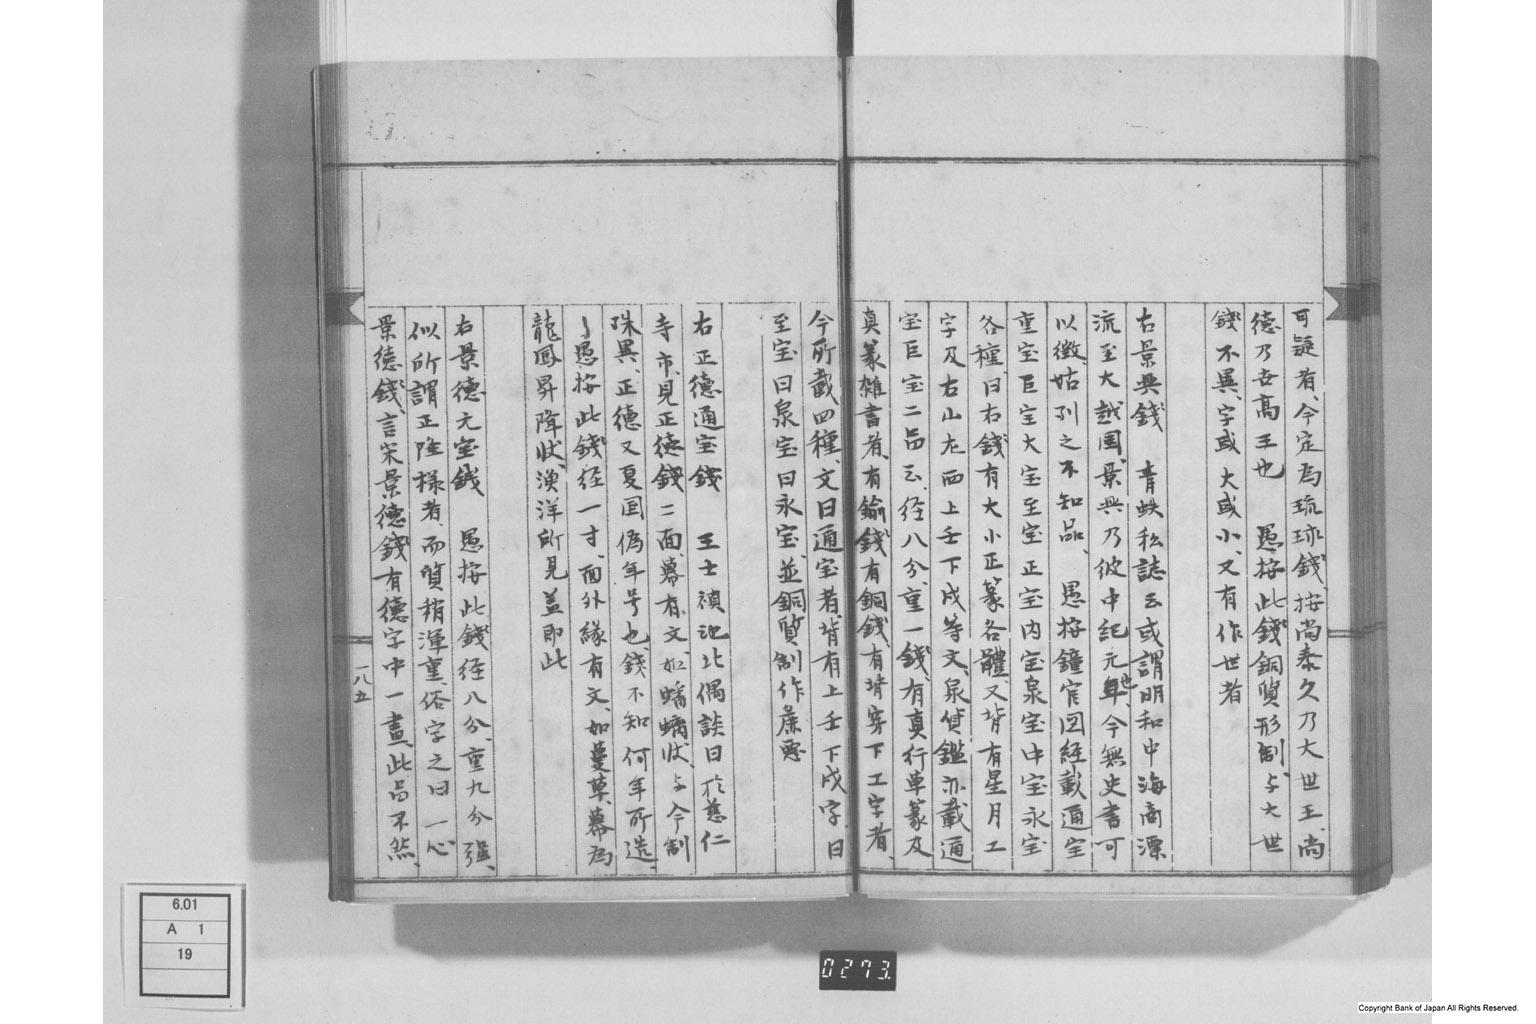 可疑者、今定為琉球錢、按尚泰久乃大世王、尚
德乃世高王也　愚按此錢銅質形制、与大世
錢不異、字或大或小、又有作世者
右景興錢　青蚨私誌云或謂明和中海商漂
流至大越国、景興乃彼中記元年、今無史書可
以徵、姑列之不知品、愚按鐘官図経載通宝
重宝巨宝大宝至宝正宝内宝泉宝中宝永宝
各種、曰右錢有大小正篆各體、又背有星月工
字及右山左西上壬下戌等文、泉貨鑑亦載通
宝巨宝二品云、径八分、重一錢、有真行草篆及
真篆雑書者、有鍮錢有銅錢、有背穿下工字者、
今所載四種文曰通宝者、背有上壬下戌字、曰
至宝曰泉宝曰永宝、並銅質制作麁悪
右正德通宝錢　王士禎池北偶談曰於慈仁
寺市、見正德錢二面、幕有文、如蟠螭状、与今制
殊異、正德又夏国偽年号也、錢不知何年所造、
愚按此錢径一寸、面外緣有文、如蔓草、幕為
龍鳳昇降状、漁洋所見盖即此
右景德元宝錢　愚按此錢径八分、重九分強、
似所謂正隆様者、而質稍渾重、俗字之曰一心
景德錢、言宋景德錢有德字中一畫、此品不然、
一八五
6.01
A 1
19
0273.
Copyright Bank of Japan All Rights Reserved.